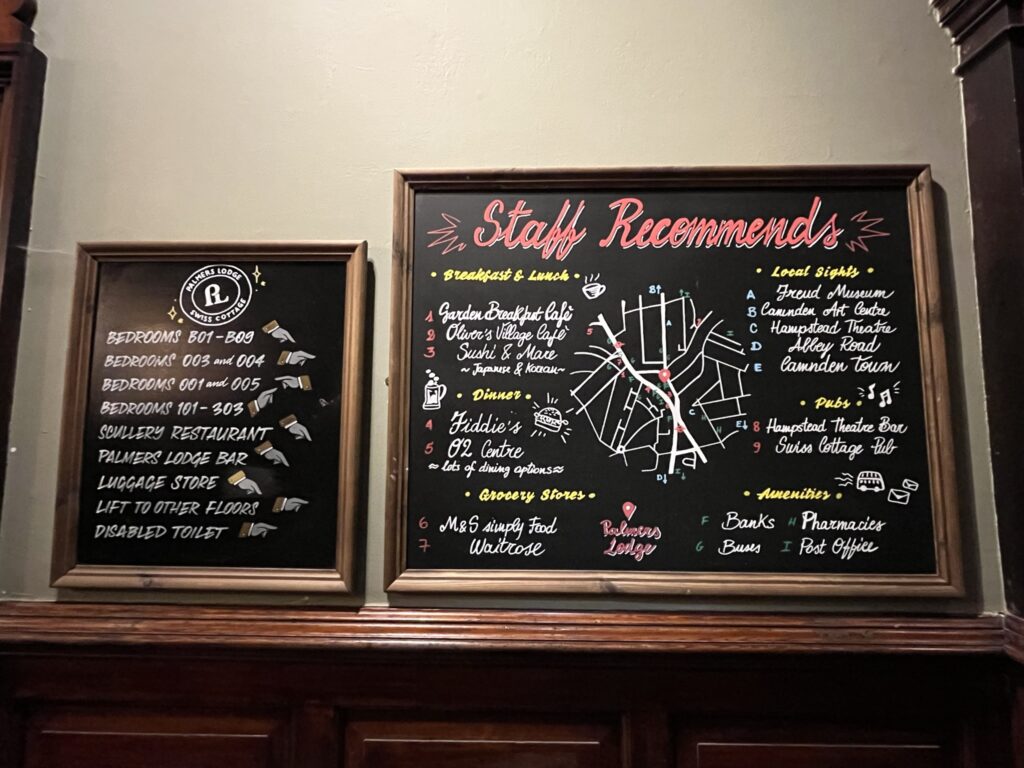 PALMERS LODGE
RL
SWISS COTTAGE
BEDROOMS B01 - B09
BEDROOMS 003 and 004
BEDROOMS 001 and 005
BEDROOMS 101 - 303
SCULLERY RESTAURANT
PALMERS LODGE BAR
LUGGAGE STORE
LIFT TO OTHER FLOORS
DISABLED TOILET
Staff Recommends
• Breakfast & Lunch •
1 Garden Breakfast Cafè
2 Oliver's Village Cafè
3 Sushi & More
~ Japanese & Korean ~
• Dinner •
4 Fiddie's
5 O2 Centre
≈ lots of dining options ≈
• Grocery Stores •
6 M&S simply Food
7 Waitrose
Palmers
Lodge
• Local Sights •
A Freud Museum
B Camnden Art Centre
C Hampstead Theatre
D Abbey Road
E Camnden Town
• Pubs •
8 Hampstead Theatre Bar
9 Swiss Cottage Pub
• Amenities •
F Banks H Pharmacies
G Buses I Post Office